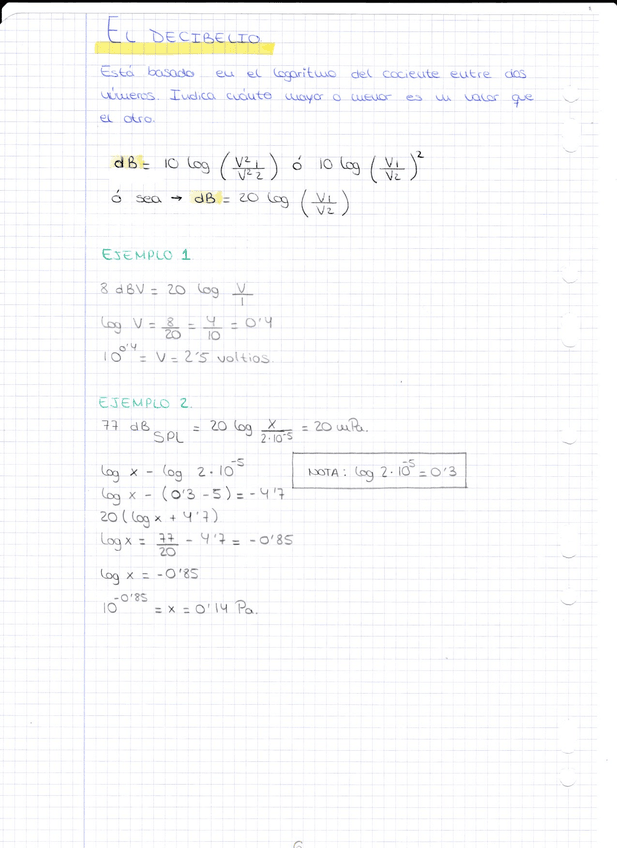 EL DECIBELIO
Está basado en el logaritmo del cociente entre dos
números. Indica cuánto mayor o menor es un valor que
el otro.
dB = 10 log (V²1/V²2) ó 10 log (V1/V2)²
ó sea → dB = 20 log (V1/V2)
EJEMPLO 1
8 dBV = 20 log V/1
log V = 8/20 = 4/10 = 0'4
10^0'4 = V = 2'5 voltios.
EJEMPLO 2.
77 dB SPL = 20 log x/2·10^-5 = 20 mPa.
log x - log 2·10^-5
NOTA: log 2·10^-5 = 0'3
log x - (0'3 - 5) = -4'7
20 (log x + 4'7)
log x = 77/20 - 4'7 = -0'85
log x = -0'85
10^-0'85 = x = 0'14 Pa.
6